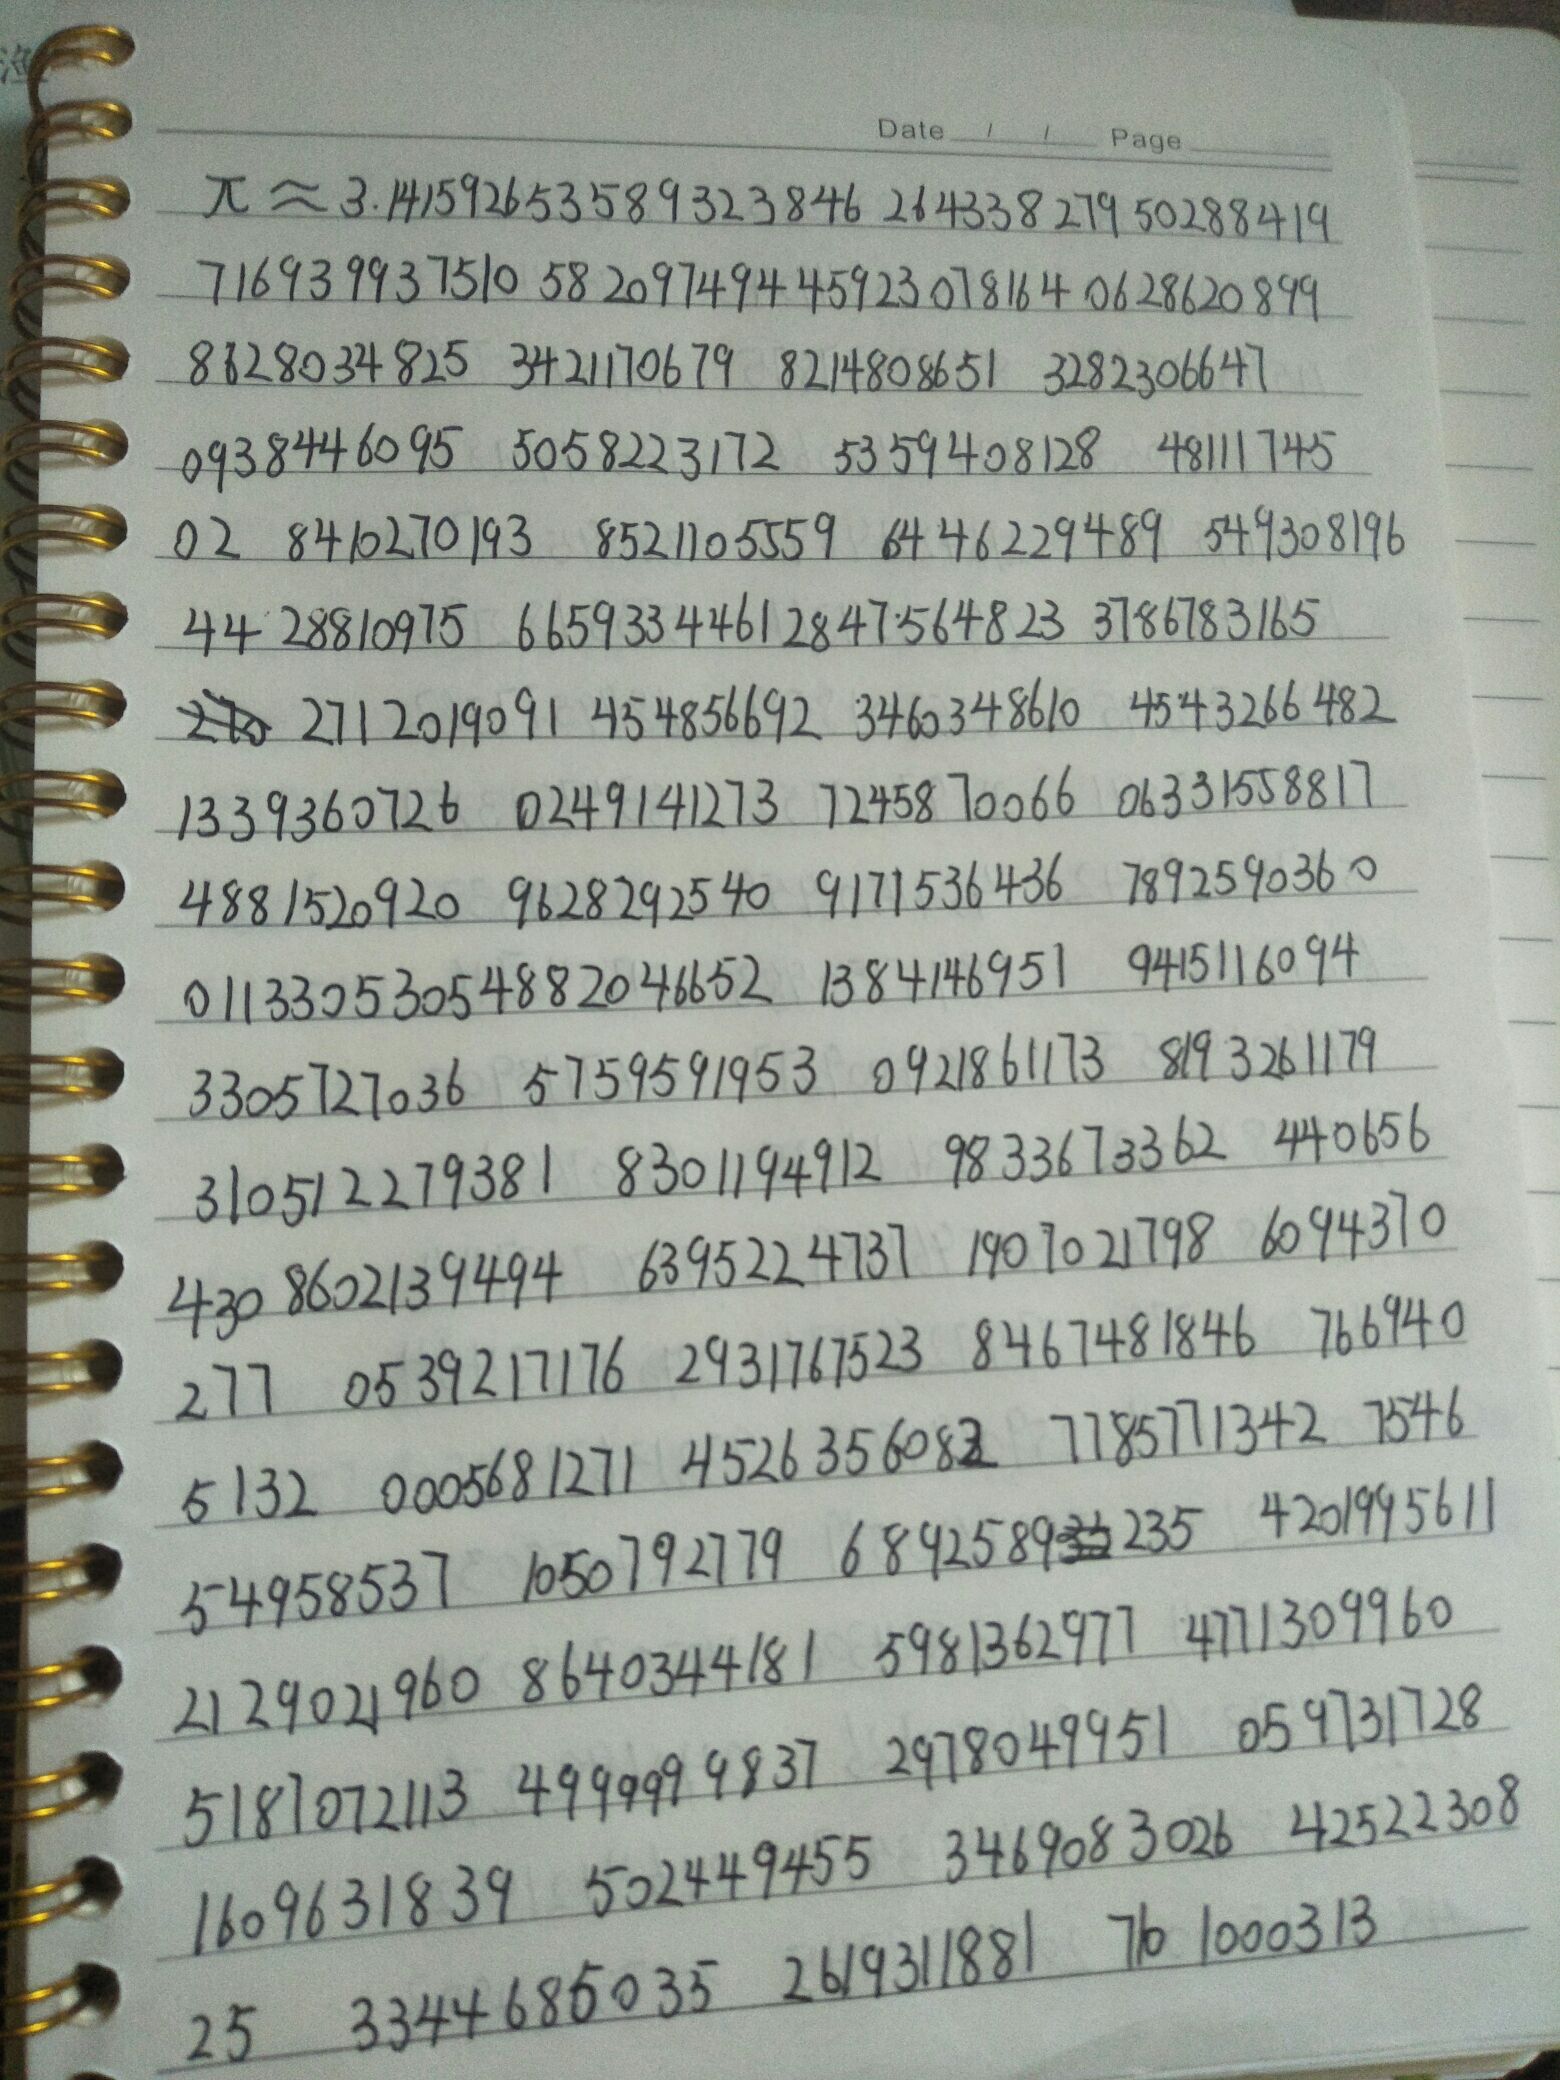 Date / / Page
π ≈ 3.141592653589323846 264338 279 50288419
7169399937510 58 2097494 4592307816 4 0628620899
8628034825 3421170679 8214808651 3282306647
0938446095 5058223172 5359408128 48111745
02 8410270193 8521105559 6446229489 549308196
44 28810975 6659334461 2847564823 3786783165
2712019091 454856692 3460348610 4543266482
1339360726 0249141273 7245870066 06331558817
4881520920 9628292540 9171536436 7892590360
01133053054882046652 1384146951 9415116094
3305727036 5759591953 0921861173 8193261179
310512279381 8301194912 9833673362 440656
430 8602139494 6395224737 1907021798 6094370
277 0539217176 2931767523 8467481846 766940
5132 0005681271 4526356082 7785771342 7546
54958537 1050792779 6892589235 4201995611
2129021960 8640344181 5981362977 4771309960
5187072113 4999999837 2978049951 059731728
1609631839 502449455 3469083026 42522308
25 3344685035 2619311881 710 1000313